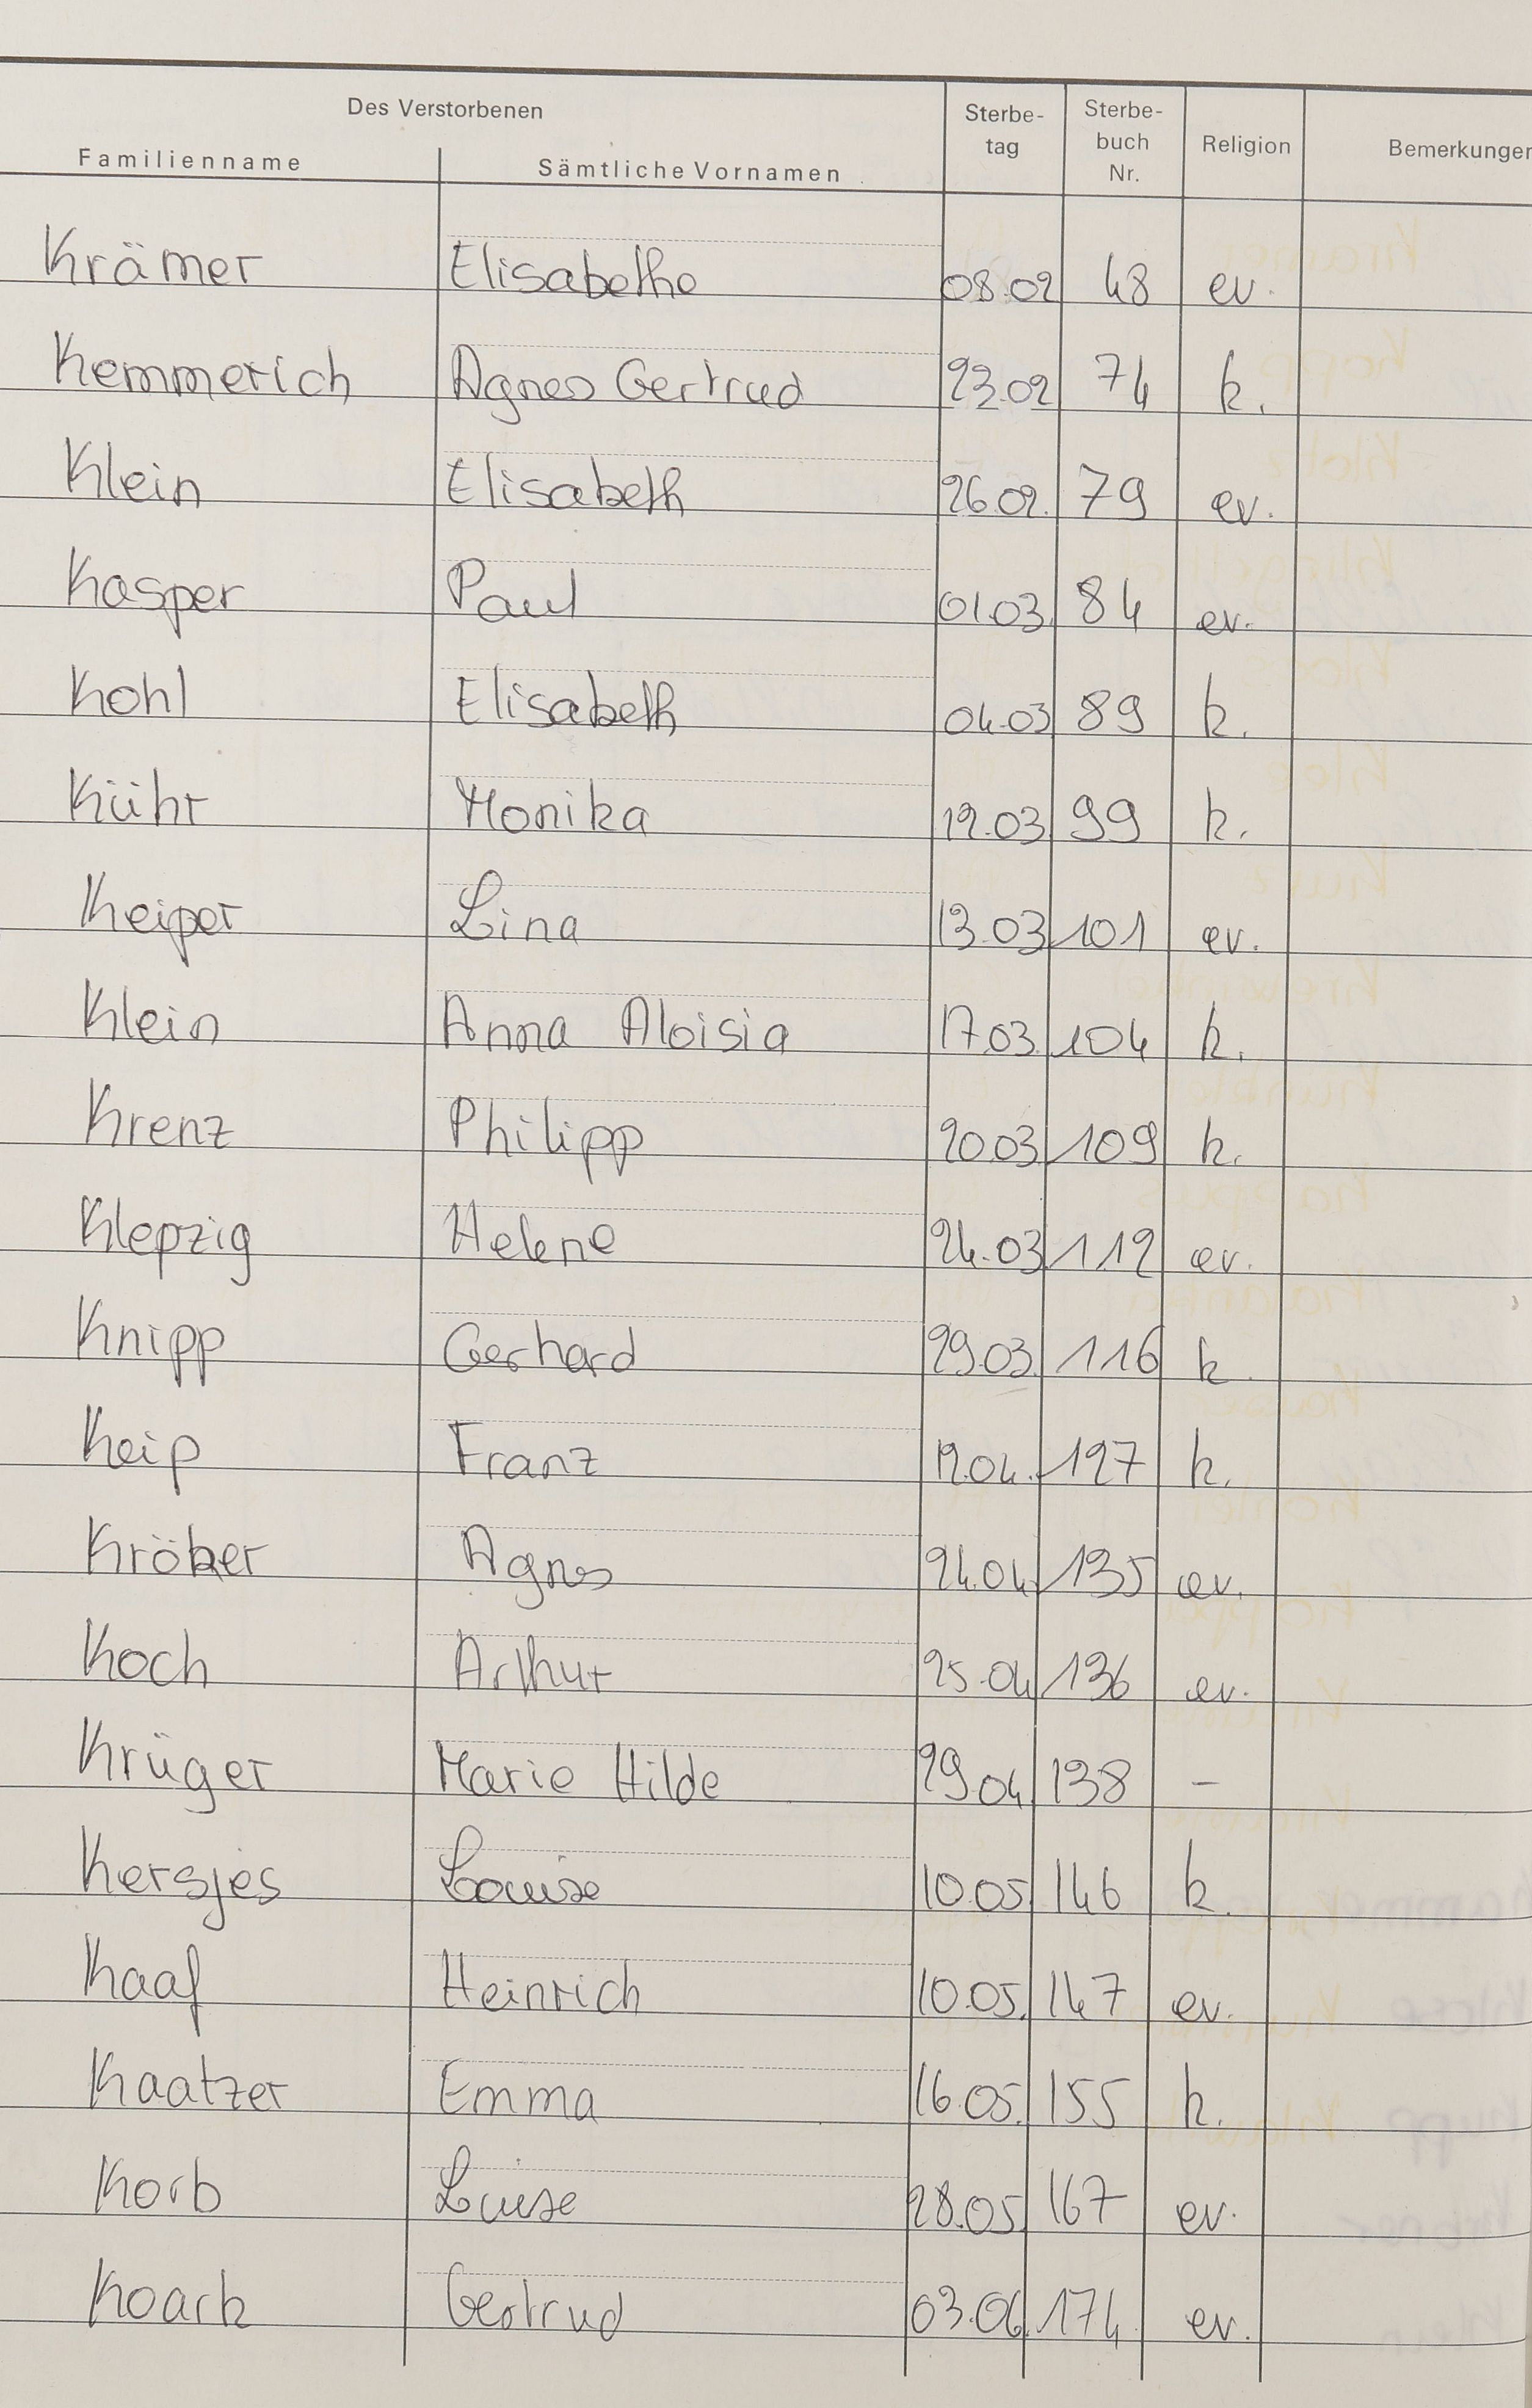 Des Verstorbenen
Familienname Sämtliche Vornamen Sterbe-tag Sterbe-buch Nr. Religion Bemerkungen
Krämer Elisabethe 08.02 48 ev.
Kemmerich Agnes Gertrud 23.02 74 k.
Klein Elisabeth 26.02. 79 ev.
Kasper Paul 01.03. 84 ev.
Kohl Elisabeth 04.03 89 k.
Kühr Monika 12.03 99 k.
Keiper Lina 13.03 101 ev.
Klein Anna Aloisia 17.03. 104 k.
Krenz Philipp 20.03 109 k.
Klepzig Helene 24.03. 112 ev.
Knipp Gerhard 29.03. 116 k.
Keip Franz 12.04. 127 k.
Kröber Agnes 24.04. 135 ev.
Koch Arthur 25.04 136 ev.
Krüger Marie Hilde 29.04. 138 –
Kersjes Louise 10.05. 146 k.
Kaaf Heinrich 10.05. 147 ev.
Kaatzer Emma 16.05. 155 k.
Korb Luise 28.05. 167 ev.
Koark Gertrud 03.06. 174. ev.